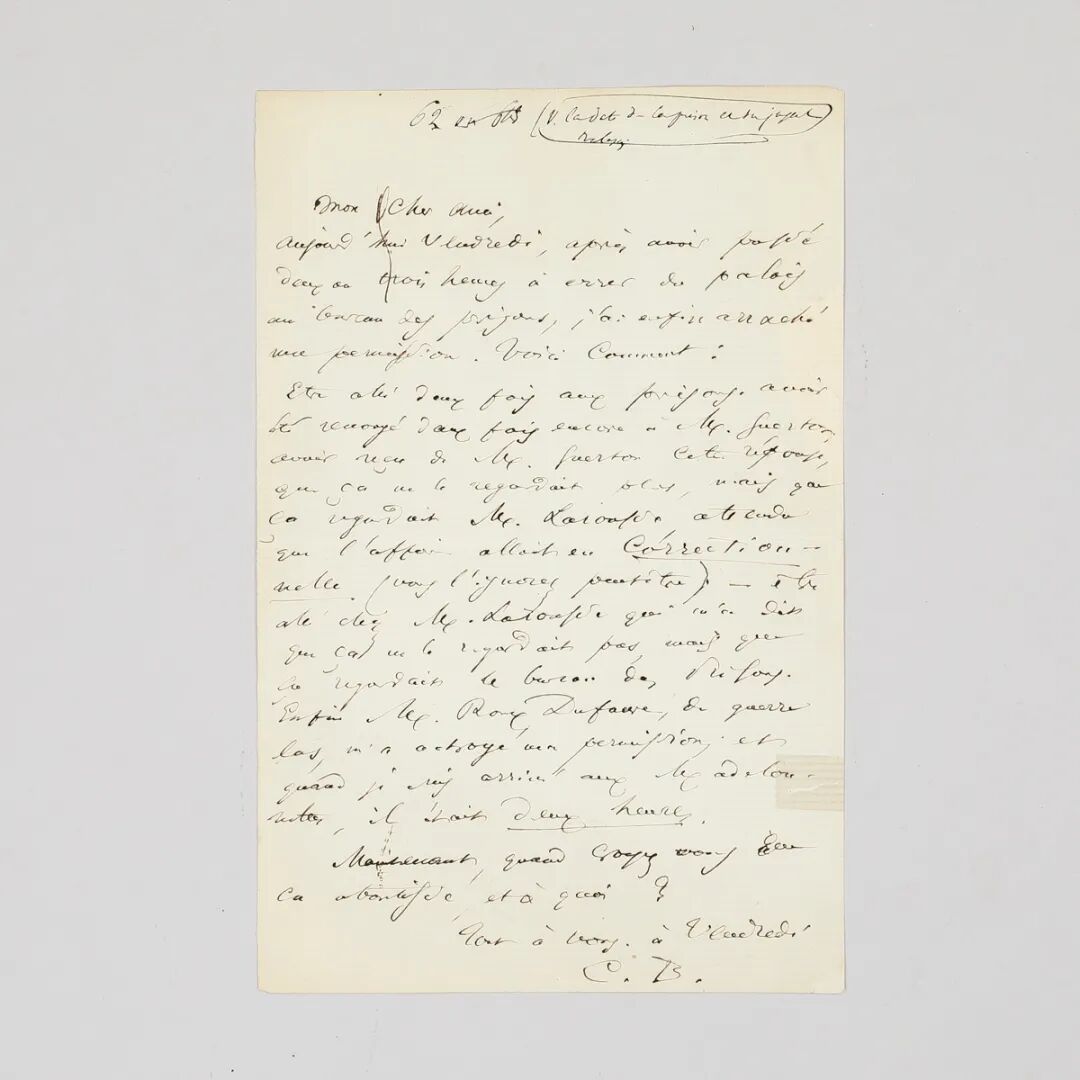 62 ou 63 (V. la date de la prison et du jugement
Mon Cher Ami,
Aujourd'hui Vendredi, après avoir passé
deux ou trois heures à errer du palais
au bureau des prisons, j'ai enfin arraché
une permission. Voici Comment :
Etre allé deux fois aux prisons. avoir
été renvoyé deux fois encore à M. Guerton,
avoir reçu de M. Guerton cette réponse,
que ça ne le regardait plus, mais que
ça regardait M. attendu
que l'affaire allait en Correction-
nelle. (vous l'ignorez peutêtre) ; — être
allé chez M. qui m'a dit
que ça ne le regardait pas, mais que
ça regardait le bureau des Prisons.
Enfin M. Roux Dufaure, de guerre
las, m'a octroyé ma permission ; et
quand je suis arrivé aux Madelon-
nettes, il était deux heures.
Maintenant, quand croyez vous que
ça aboutisse, et à quoi ?
Tout à vous. à Vendredi
C. B.